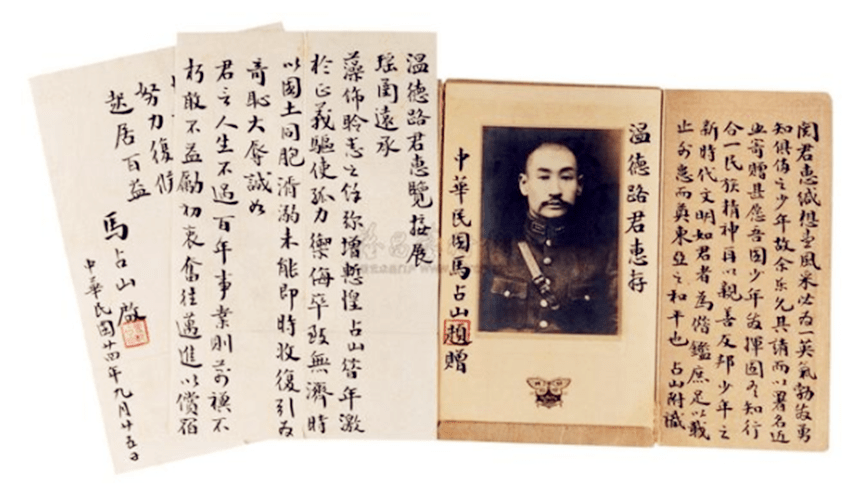 閱君惠緘想望風采必為一英氣勃發勇
知俱備之少年故余樂允其請而以署名近
照寄贈甚愿吾國少年發揮固有知行
合一民族精神再以親善友邦少年之
新時代文明如君者為借鑑庶足以戢
止外患而奠東亞之和平也 占山附識
溫德路君惠存
中華民國馬占山題贈
溫德路君惠覽接展
瑤函遠承
藻飾聆悉之任弥增慙惶占山昔年激
於正義驅使孤力禦侮卒致無濟時
以國土同胞淪溺未能即時收復引為
奇恥大辱誠如
君言人生不過百年事業則萬禩不
朽敢不益勵初衷奮往邁進以償宿
努力復
起居百益
馬占山啟
中華民國廿四年九月廿五日